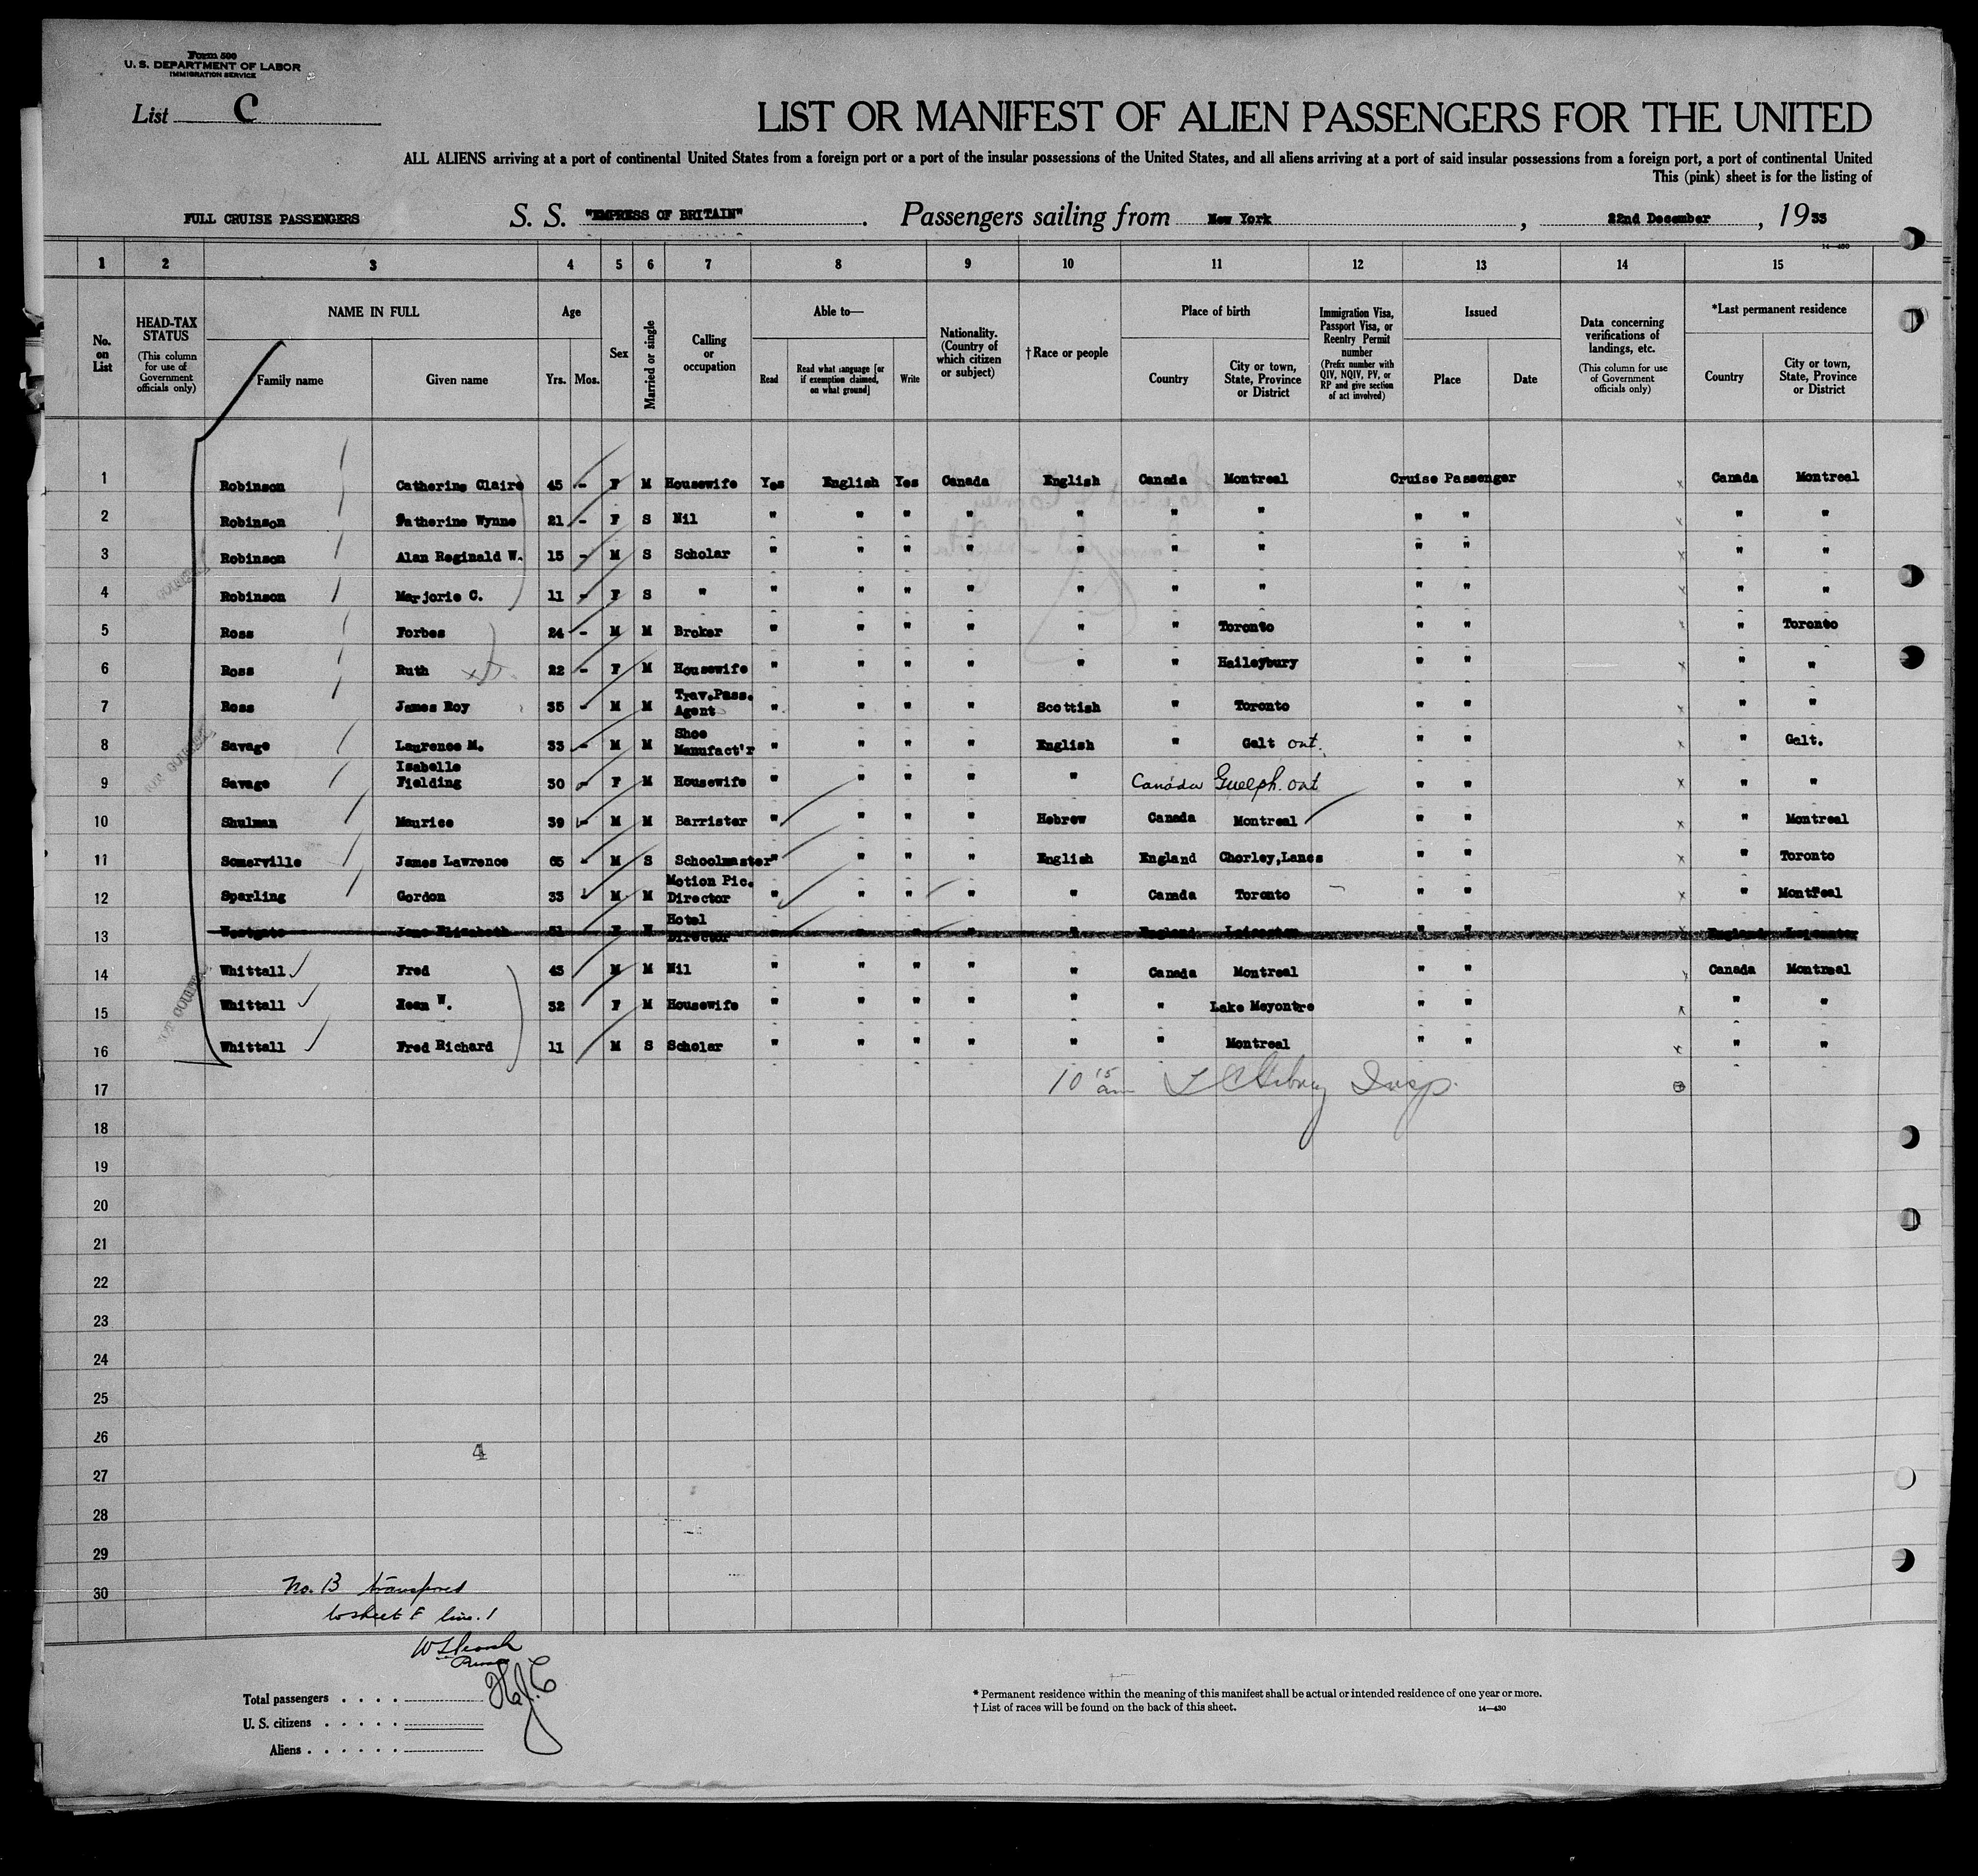 Form 500
U. S. DEPARTMENT OF LABOR
IMMIGRATION SERVICE
List C
LIST OR MANIFEST OF ALIEN PASSENGERS FOR THE UNITED
ALL ALIENS arriving at a port of continental United States from a foreign port or a port of the insular possessions of the United States, and all aliens arriving at a port of said insular possessions from a foreign port, a port of continental United
This (pink) sheet is for the listing of
FULL CRUISE PASSENGERS S. S. "EMPRESS OF BRITAIN". Passengers sailing from New York, 22nd December, 1933
14—430
1 2 3 4 5 6 7 8 9 10 11 12 13 14 15
No. on List
HEAD-TAX STATUS
(This column for use of Government officials only)
NAME IN FULL
Family name Given name
Age
Yrs. Mos.
Sex
Married or single
Calling or occupation
Able to—
Read Read what language [or if exemption claimed, on what ground] Write
Nationality. (Country of which citizen or subject)
† Race or people
Place of birth
Country City or town, State, Province or District
Immigration Visa, Passport Visa, or Reentry Permit number
(Prefix number with QIV, NQIV, PV, or RP and give section of act involved)
Issued
Place Date
Data concerning verifications of landings, etc.
(This column for use of Government officials only)
*Last permanent residence
Country City or town, State, Province or District
1 Robinson Catherine Claire 45 - F M Housewife Yes English Yes Canada English Canada Montreal Cruise Passenger x Canada Montreal
2 Robinson Catherine Wynne 21 - F S Nil " " " " " " " " " x " "
3 Robinson Alan Reginald W. 15 - M S Scholar " " " " " " " " " x " "
4 Robinson Marjorie C. 11 - F S " " " " " " " " " " x " "
5 Ross Forbes 24 - M M Broker " " " " " " Toronto " " x " Toronto
6 Ross Ruth 22 - F M Housewife " " " " " " Haileybury " " x " "
7 Ross James Roy 35 - M M Trav.Pass. Agent " " " " Scottish " Toronto " " x " "
8 Savage Laurence M. 33 - M M Shoe Manufact'r " " " " English " Galt Ont. " " x " Galt.
9 Savage Isabelle Fielding 30 - F M Housewife " " " " " Canada Guelph. Ont " " x " "
10 Shulman Maurice 39 - M M Barrister " " " " Hebrew Canada Montreal " " x " Montreal
11 Somerville James Lawrence 65 - M S Schoolmaster " " " " English England Chorley,Lancs " " x " Toronto
12 Sparling Gordon 33 M M Motion Pic. Director " " " " " Canada Toronto " " x " Montreal
13 Westgate Jane Elizabeth 51 F M Hotel Director " " " " " England Leicester " " x England Leicester
14 Whittall Fred 43 M M Nil " " " " " Canada Montreal " " x Canada Montreal
15 Whittall W. 32 F M Housewife " " " " " " Lake Meyontre " " x " "
16 Whittall Fred Richard 11 M S Scholar " " " " " " Montreal " " x " "
17 10 15 am Insp.
18
19
20
21
22
23
24
25
26
4
27
28
29
30
No. 13 transferred
to sheet F line. 1
Total passengers
U. S. citizens
Aliens
* Permanent residence within the meaning of this manifest shall be actual or intended residence of one year or more.
† List of races will be found on the back of this sheet. 14—430